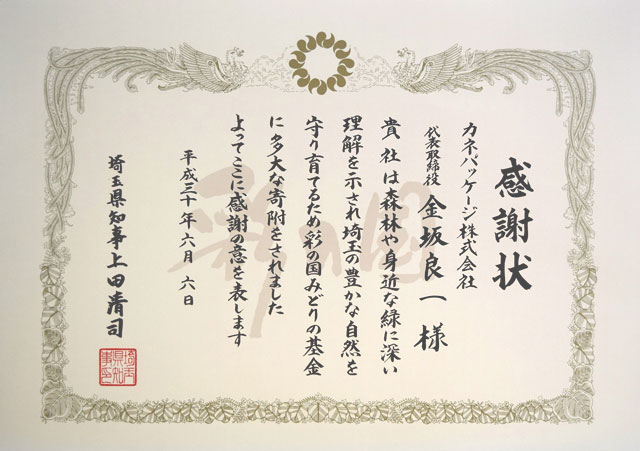 感謝状
カネパッケージ株式会社
代表取締役 金坂良一様
貴社は森林や身近な緑に深い
理解を示され埼玉の豊かな自然を
守り育てるため彩の国みどりの基金
に多大な寄附をされました
よってここに感謝の意を表します
平成三十年六月六日
埼玉県知事上田清司
埼玉
県知
事印
彩の国